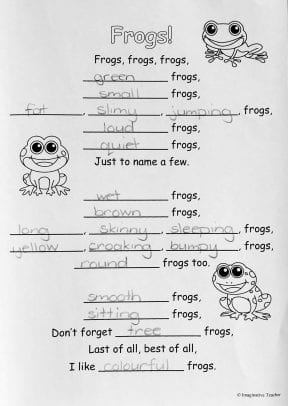 Frogs!
Frogs, frogs, frogs,
green frogs,
small frogs,
fat, slimy, jumping, frogs,
loud frogs,
quiet frogs,
Just to name a few.
wet frogs,
brown frogs,
long, skinny, sleeping frogs,
yellow, croaking, bumpy, frogs,
round frogs too.
smooth frogs,
sitting frogs,
Don't forget tree frogs,
Last of all, best of all,
I like colourful frogs.
© Imaginative Teacher